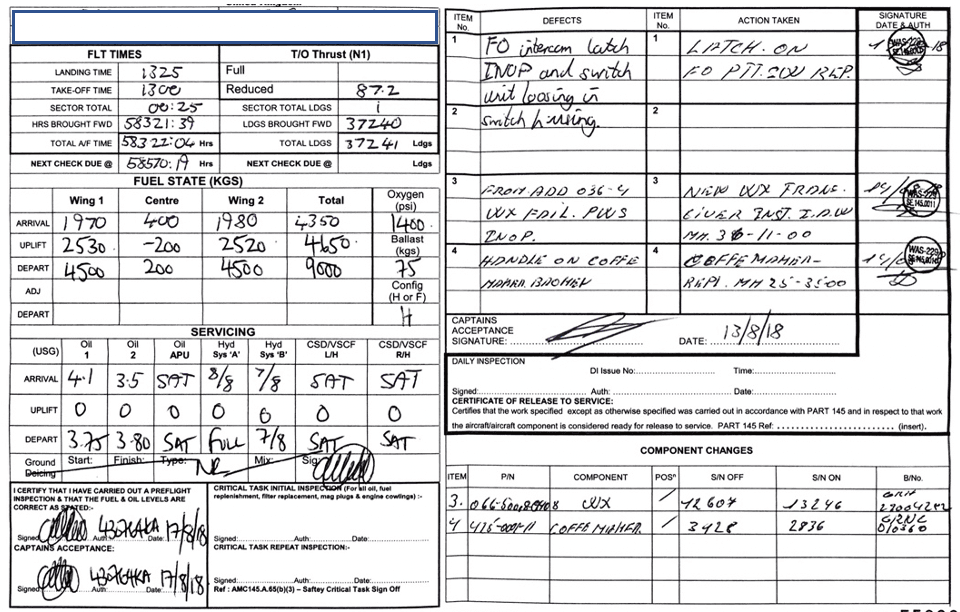 United Kingdom
FLT TIMES T/O Thrust (N1)
LANDING TIME 1325 Full
TAKE-OFF TIME 1300 Reduced 87.2
SECTOR TOTAL 00:25 SECTOR TOTAL LDGS 1
HRS BROUGHT FWD 58321:39 LDGS BROUGHT FWD 37240
TOTAL A/F TIME 58322:04 Hrs TOTAL LDGS 37241 Ldgs
NEXT CHECK DUE @ 58570:19 Hrs NEXT CHECK DUE @ Ldgs
FUEL STATE (KGS)
Wing 1 Centre Wing 2 Total Oxygen (psi)
ARRIVAL 1970 400 1980 4350 1400
UPLIFT 2530 -200 2520 4650 Ballast (kgs)
DEPART 4500 200 4500 9000 75
ADJ Config (H or F)
DEPART H
SERVICING
(USG) Oil 1 Oil 2 Oil APU Hyd Sys 'A' Hyd Sys 'B' CSD/VSCF L/H CSD/VSCF R/H
ARRIVAL 4.1 3.5 SAT 8/8 7/8 SAT SAT
UPLIFT 0 0 0 0 0 0 0
DEPART 3.75 3.80 SAT FULL 7/8 SAT SAT
Ground Deicing Start: Finish: Type: Mix: Sig
I CERTIFY THAT I HAVE CARRIED OUT A PREFLIGHT
INSPECTION & THAT THE FUEL & OIL LEVELS ARE
CORRECT AS STATED:-
Signed Auth Date: 17/8/18
CAPTAINS ACCEPTANCE:
Signed Auth Date: 17/8/18
CRITICAL TASK INITIAL INSPECTION (For all oil, fuel
replenishment, filter replacement, mag plugs & engine cowlings) :-
Signed: Auth: Date:
CRITICAL TASK REPEAT INSPECTION:-
Signed: Auth: Date:
Ref : AMC145.A.65(b)(3) – Saftey Critical Task Sign Off
ITEM No. DEFECTS ITEM No. ACTION TAKEN SIGNATURE DATE & AUTH
1 FO intercom latch 1 LATCH ON
INOP and switch FO PTT.SW REP.
unit loosing in
2 switch housing. 2
3 FROM ADD 036-4 3 NEW WX TRANS.
WX FAIL. PWS CIVER INST. I.A.W
INOP. MM. 36-11-00
4 HANDLE ON COFFE 4 COFFEMAKER
REPL. MM 25-35-00
CAPTAINS
ACCEPTANCE
SIGNATURE: DATE: 13/8/18
DAILY INSPECTION
DI Issue No: Time:
Signed: Auth: Date:
CERTIFICATE OF RELEASE TO SERVICE:
Certifies that the work specified except as otherwise specified was carried out in accordance with PART 145 and in respect to that work
the aircraft/aircraft component is considered ready for release to service. PART 145 Ref: (insert).
COMPONENT CHANGES
ITEM P/N COMPONENT POSⁿ S/N OFF S/N ON B/No.
3. WX / 12607 13246
4 COFFEMAKER / 3428 2836